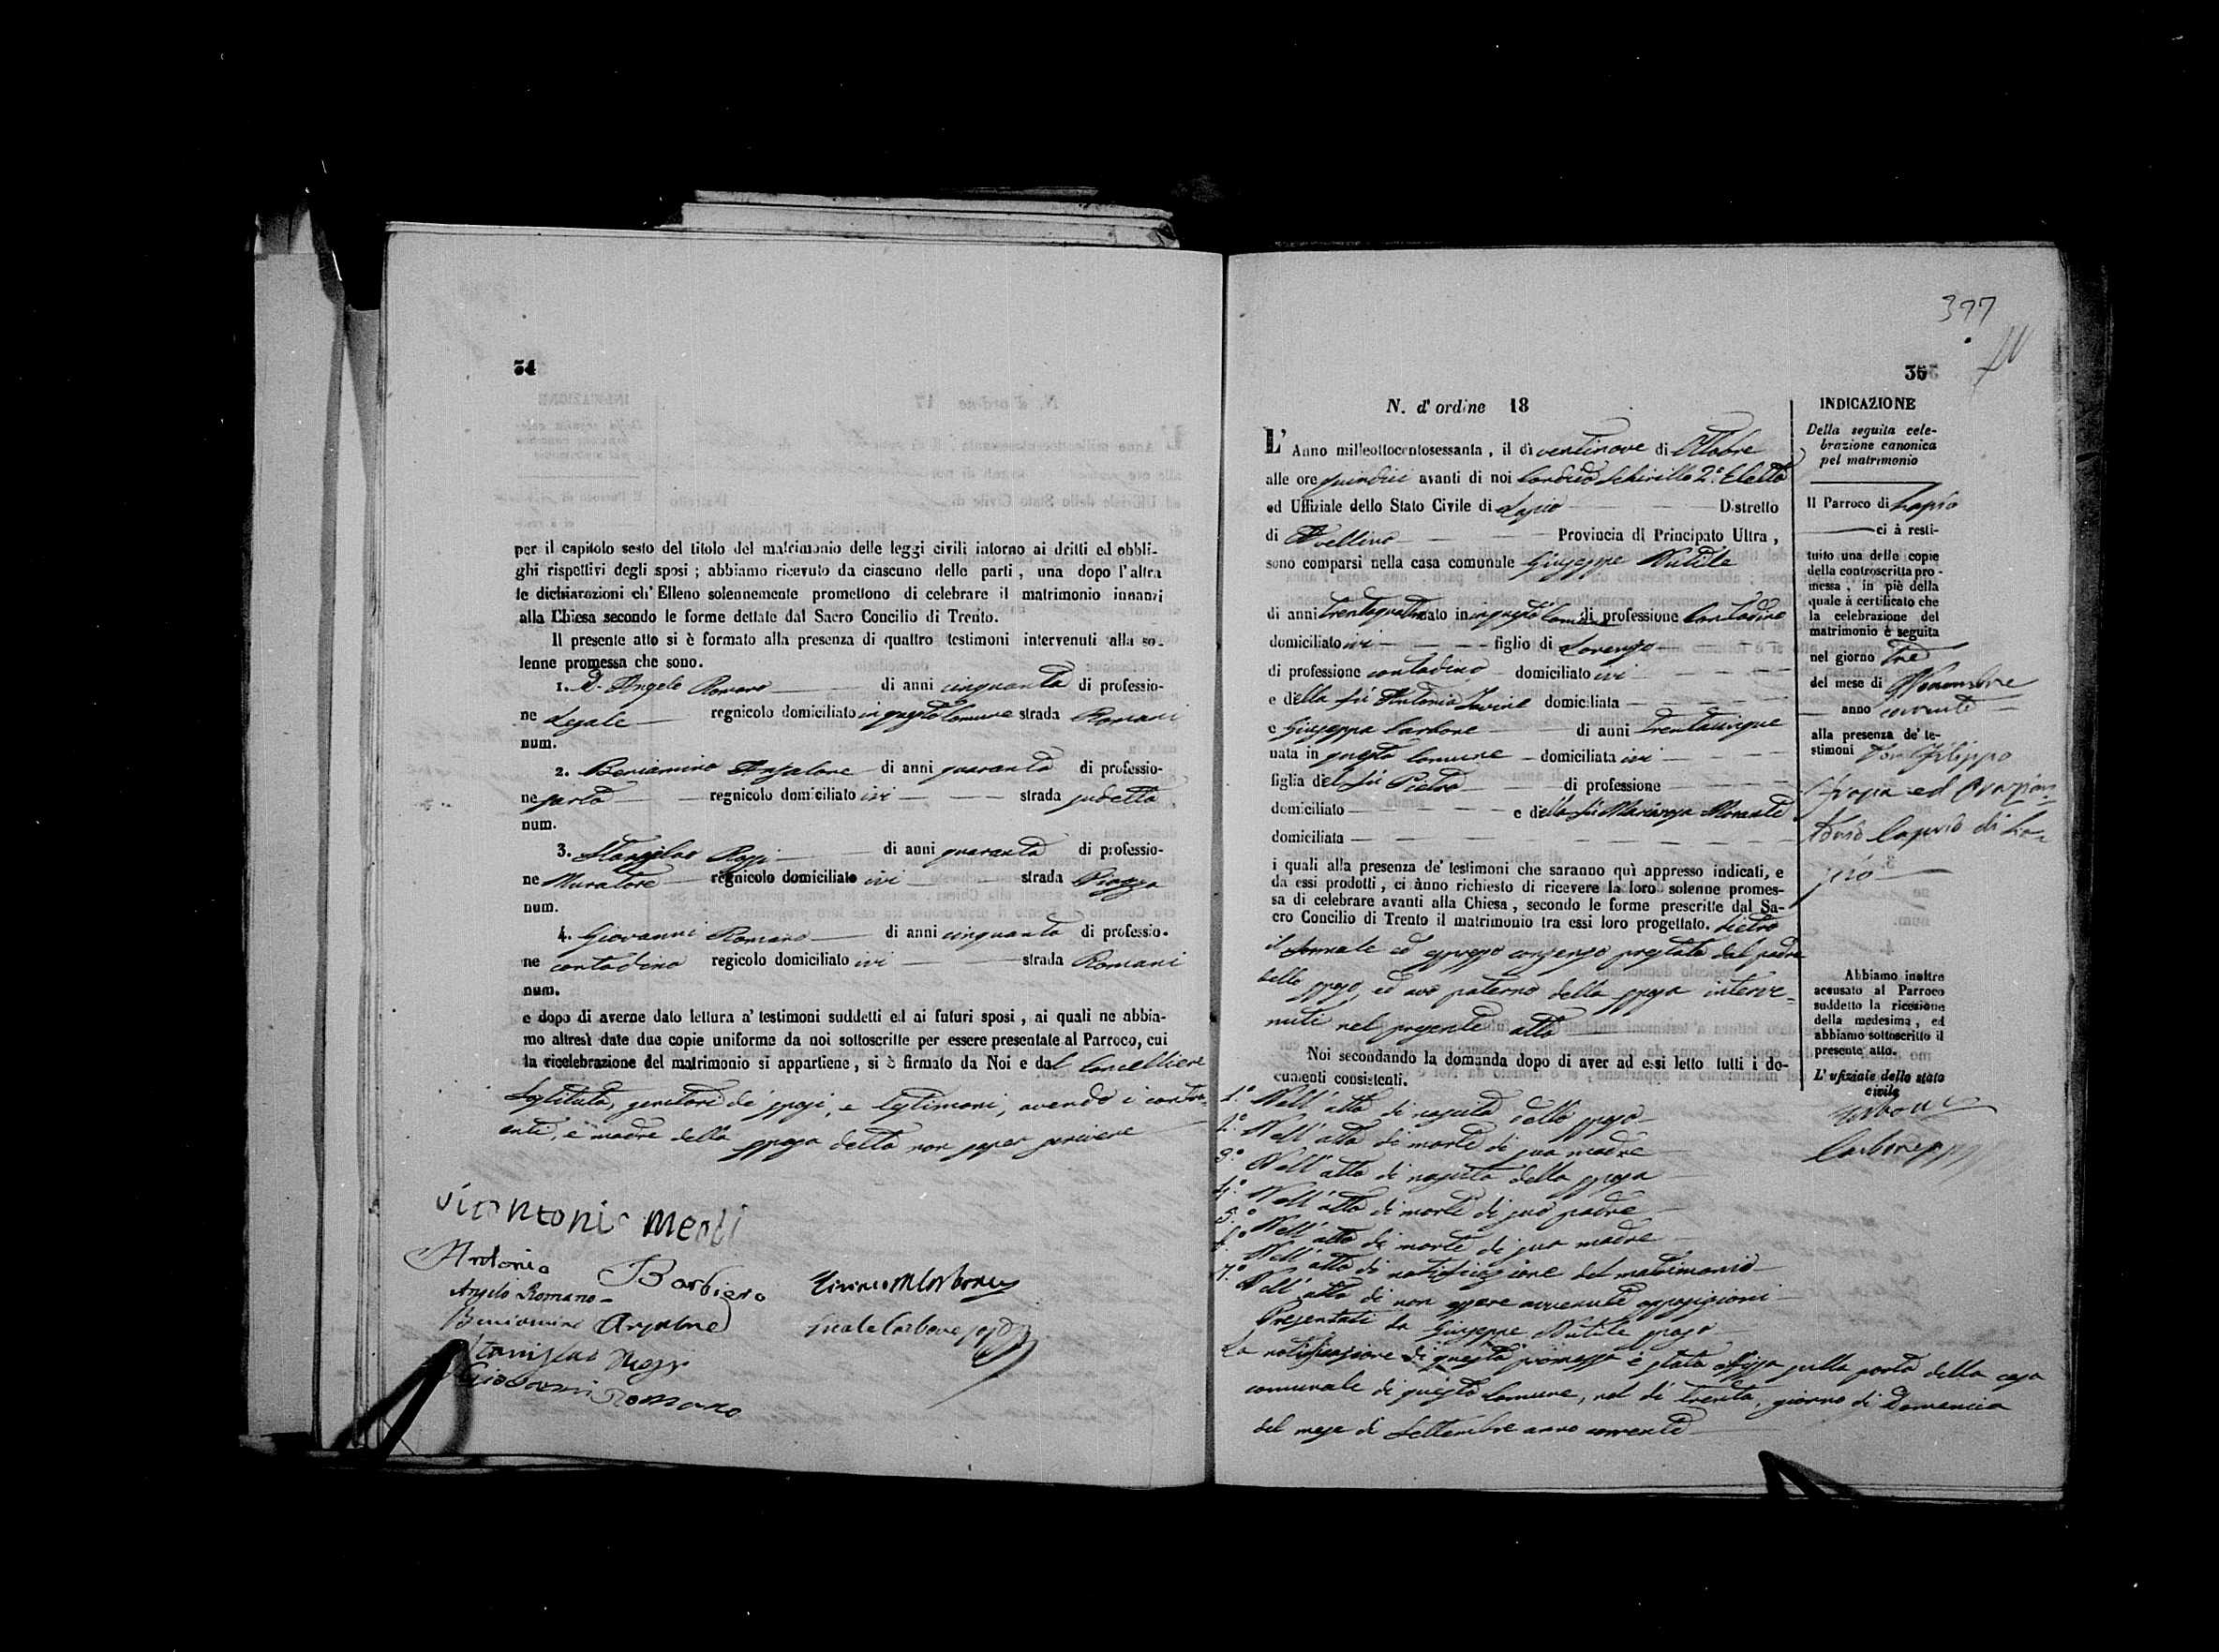 34
per il capitolo sesto del titolo del matrimonio delle leggi civili intorno ai dritti ed obbli-
ghi rispettivi degli sposi ; abbiamo ricevuto da ciascuno delle parti , una dopo l'altra
le dichiarazioni ch' Elleno solennemente promettono di celebrare il matrimonio innanzi
alla Chiesa secondo le forme dettate dal Sacro Concilio di Trento.
Il presente atto si è formato alla presenza di quattro testimoni intervenuti alla so-
lenne promessa che sono.
1. D. Angelo Romano di anni cinquanta di professio-
ne Legale regnicolo domiciliato in questo Comune strada Romani
num.
2. Beniamino di anni quaranta di professio-
ne sarto regnicolo domiciliato ivi strada
num.
3. di anni quaranta di professio-
ne Muratore regnicolo domiciliato ivi strada Piazza
num.
4. Giovanni Romano di anni cinquanta di professio-
ne contadino regicolo domiciliato ivi strada Romani
num.
e dopo di averne dato lettura a' testimoni suddetti ed ai futuri sposi , ai quali ne abbia-
mo altresì date due copie uniforme da noi sottoscritte per essere presentate al Parroco, cui
la ricelebrazione del matrimonio si appartiene , si è firmato da Noi e dal Cancelliere
Sostituto, genitori de' sposi, e testimoni, avendo i contra-
enti, e madre della sposa detto non saper scrivere
Antonio Barbiero
Angelo Romano
Beniamino
Stanislao
Giovanni Romano
397
35
N. d' ordine 18
L' Anno milleottocentosessanta , il dì ventinove di Ottobre
alle ore quindici avanti di noi Schirillo 2.° Eletto
ed Uffiziale dello Stato Civile di Lapio Distretto
di Avellino Provincia di Principato Ultra ,
sono comparsi nella casa comunale Giuseppe Nutile
di anni trentaquattro nato in questo Comune di professione Contadino
domiciliato ivi figlio di Lorenzo
di professione contadino domiciliato ivi
e della fù Antonia domiciliata
e Giuseppa Carbone di anni trentacinque
nata in questo Comune domiciliata ivi
figlia del fù Pietro di professione
domiciliato e della fù Mariangia Morante
domiciliata
i quali alla presenza de' testimoni che saranno quì appresso indicati, e
da essi prodotti , ci ànno richiesto di ricevere la loro solenne promes-
sa di celebrare avanti alla Chiesa , secondo le forme prescritte dal Sa-
cro Concilio di Trento il matrimonio tra essi loro progettato. Dietro
il formale ed espresso consenso prestato dal padre
dello sposo, ed avo paterno della sposa interve-
nuti nel presente atto
Noi secondando la domanda dopo di aver ad essi letto tutti i do-
cumenti consistenti.
1.° Nell' atto di nascita dello sposo
2.° Nell' atto di morte di sua madre
3.° Nell' atto di nascita della sposa
4.° Nell' atto di morte di suo padre
5.° Nell' atto di morte di sua madre
6.° Nell' atto di notificazione del matrimonio
7.° Nell' atto di non essere avvenute opposizioni
Presentati da Giuseppe Nutile sposo
La notificazione di questa promessa è stata affissa sulla porta della casa
comunale di questo Comune, nel dì trenta, giorno di Domenica
del mese di Settembre anno corrente
INDICAZIONE
Della seguita cele-
brazione canonica
pel matrimonio
Il Parroco di Lapio
ci à resti-
tuito una delle copie
della controscritta pro-
messa , in piè della
quale à certificato che
la celebrazione del
matrimonio è seguita
nel giorno tre
del mese di Novembre
anno corrente
alla presenza de' te-
stimoni Don Filippo
di La-
pio
Abbiamo inoltre
accusato al Parroco
suddetto la ricezione
della medesima , ed
abbiamo sottoscritto il
presente atto.
L' ufiziale dello stato
civile
Carbone